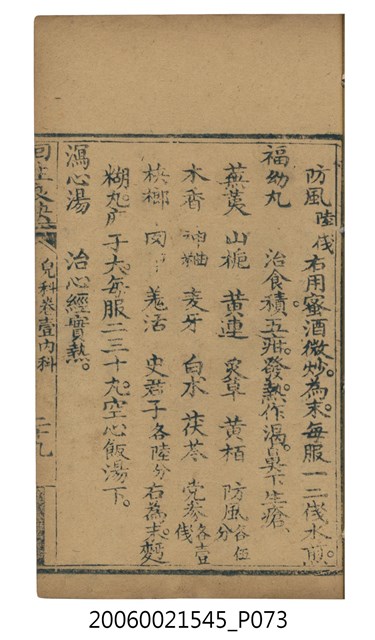 防風陸伐 右用蜜酒微炒。為末。每服一二伐水煎。
福幼丸 治食積五疳。發熱作渴。鼻下生瘡。
蕪荑 山梔 黃連 炙草 黃栢 防風各伍分
木香 神粬 麦牙 白朮 茯苓 党参各壹伐
梹榔 羗活 史君子各陸分 右為末。麵
糊丸 子大。每服二三十丸。空心飯湯下。
瀉心湯 治心經實熱。
兒科卷壹內科 二十九
20060021545_P073